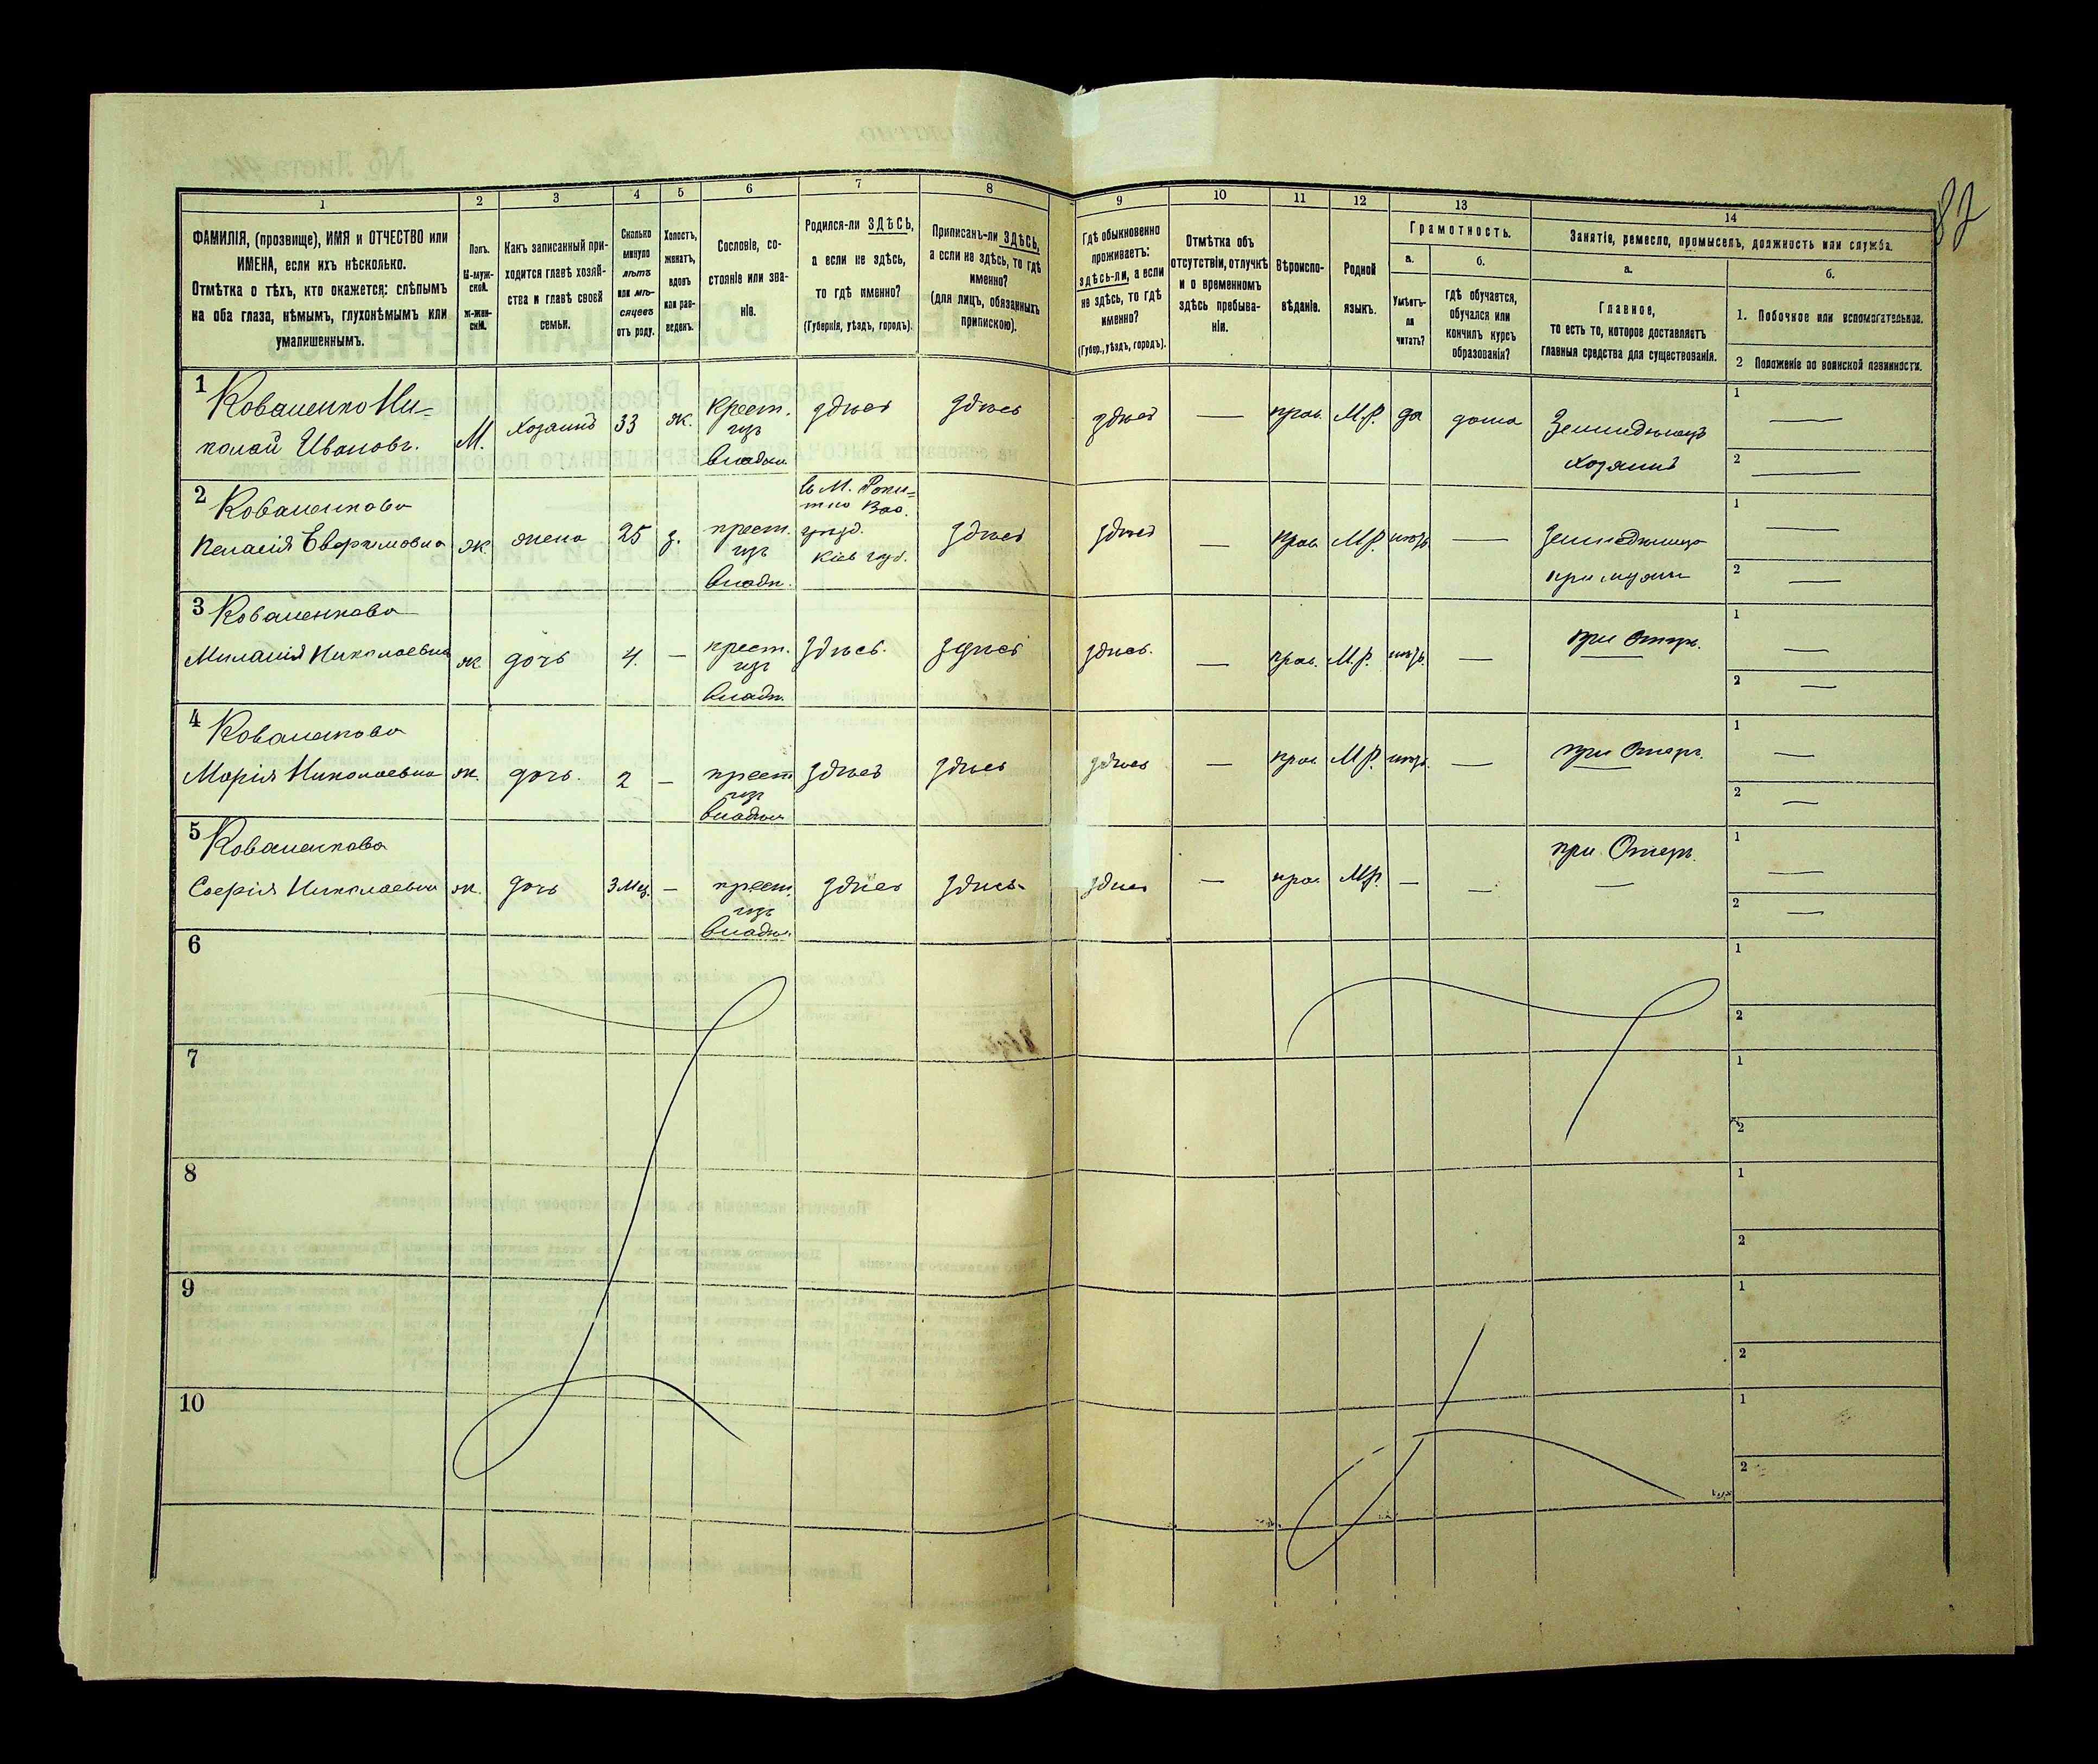 82
1 2 3 4 5 6 7 8 9 10 11 12 13 14
ФАМИЛІЯ, (прозвище), ИМЯ и ОТЧЕСТВО или
ИМЕНА, если ихъ нѣсколько.
Отмѣтка о тѣхъ, кто окажется: слѣпымъ
на оба глаза, нѣмымъ, глухонѣмымъ или
умалишеннымъ.
Полъ.
М-муж-
ской.
ж-жен-
скій.
Какъ записанный при-
ходится главѣ хозяй-
ства и главѣ своей
семьи.
Сколько
минуло
лѣтъ
или мѣ-
сяцевъ
отъ роду.
Холостъ,
женатъ,
вдовъ
или раз-
веденъ.
Сословіе, со-
стояніе или зва-
ніе.
Родился-ли ЗДѢСЬ,
а если не здѣсь,
то гдѣ именно?
(Губернія, уѣздъ, городъ).
Приписанъ-ли ЗДѢСЬ,
а если не здѣсь, то гдѣ
именно?
(для лицъ, обязанныхъ
припискою).
Гдѣ обыкновенно
проживаетъ:
здѣсь-ли, а если
не здѣсь, то гдѣ
именно?
(Губер., уѣздъ, городъ).
Отмѣтка объ
отсутствіи, отлучкѣ
и о временномъ
здѣсь пребыва-
ніи.
Вѣроиспо-
вѣданіе.
Родной
языкъ.
Грамотность.
а.
Умѣетъ-
ли
читать?
б.
гдѣ обучается,
обучался или
кончилъ курсъ
образованія?
Занятіе, ремесло, промыселъ, должность или служба.
а.
Главное,
то есть то, которое доставляетъ
главныя средства для существованія.
б.
1. Побочное или вспомогательное.
2 Положеніе по воинской повинности.
1 Коваленко Ни-
колай Ивановъ. М. хозяинъ 33 ж. крест. изъ владѣл. здѣсь здѣсь здѣсь — прав. М.Р. да дома Земледѣлецъ хозяинъ 1 — 2 —
2 Коваленкова
Пелагія Евфимовна ж. жена 25 з. крест. изъ владѣл. въ М. Роки-
тно Вас.
уѣзд.
Кіев. губ. здѣсь здѣсь — прав. М.Р. нѣтъ — при мужѣ 1 — 2 —
3 Коваленкова
Миланія Николаевна ж. дочь 4. — крест. изъ владѣл. здѣсь. здѣсь здѣсь. — прав. М.Р. нѣтъ. — при Отцѣ. 1 — 2 —
4 Коваленкова
Марія Николаевна ж. дочь. 2 — крест. изъ владѣл. здѣсь здѣсь здѣсь — прав. М.Р. нѣтъ. — при Отцѣ. 1 — 2 —
5 Коваленкова
Софія Николаевна ж. дочь 3 Мѣц. — крест. изъ владѣл. здѣсь здѣсь здѣсь — прав. М.Р. — — при Отцѣ. 1 — 2 —
6 1 2
7 1 2
8 1 2
9 1 2
10 1 2